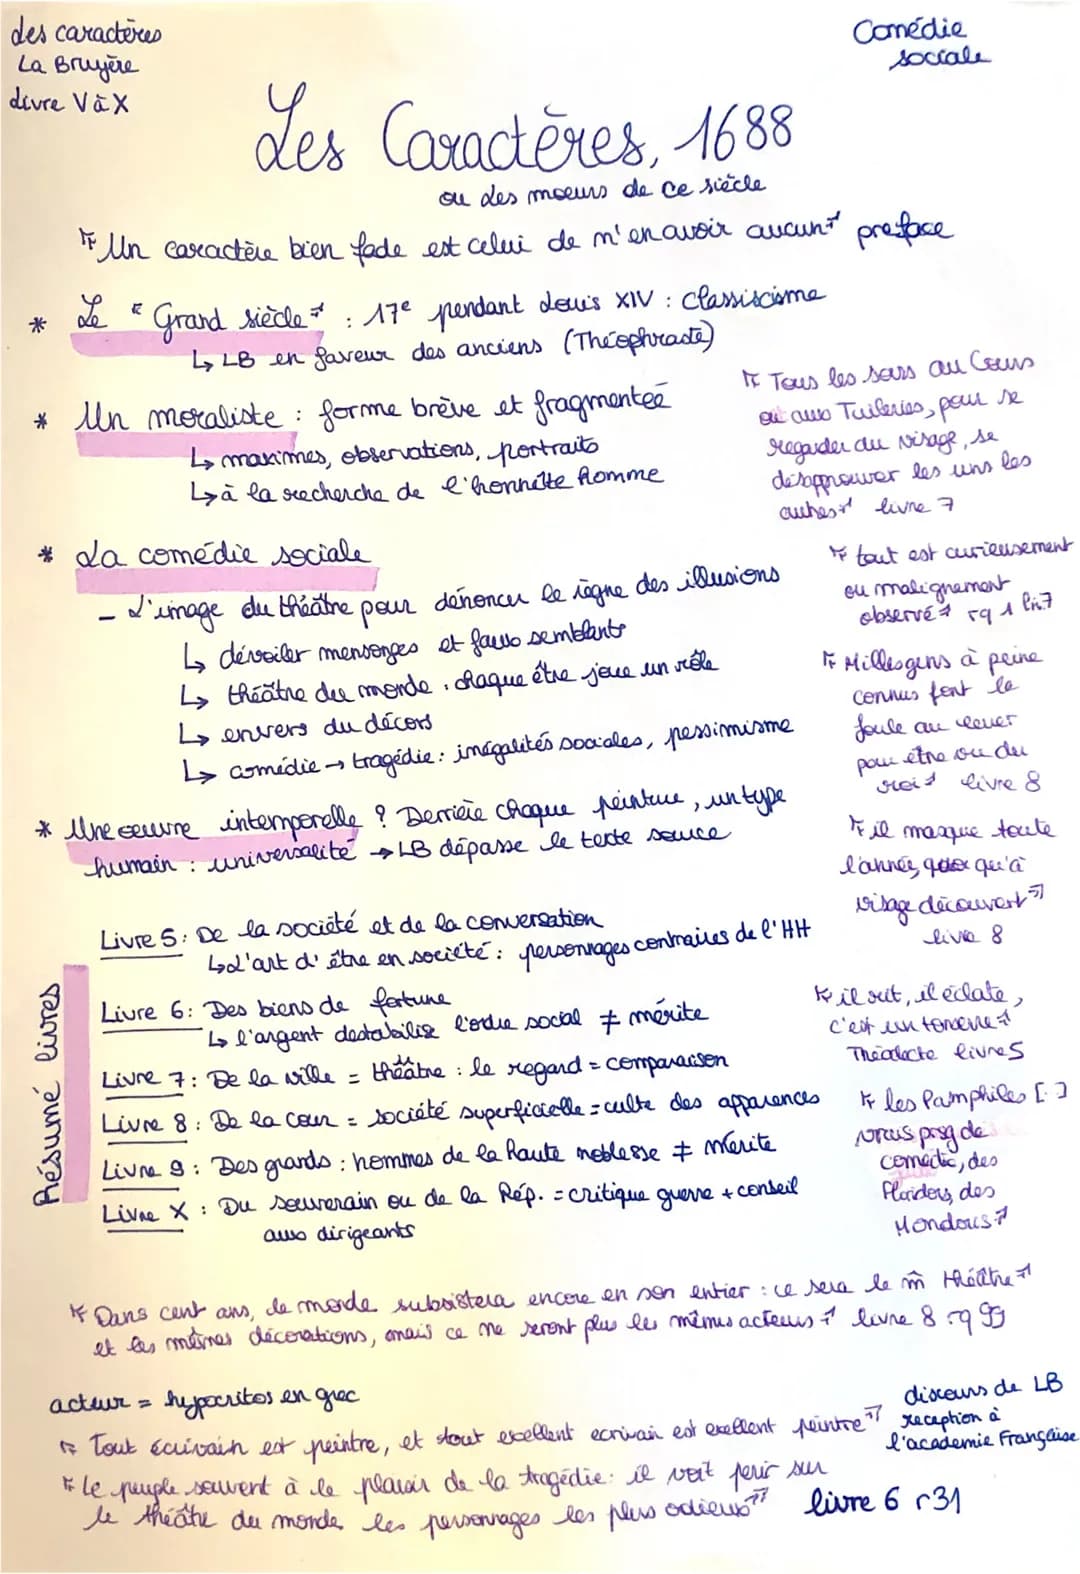 des caractères
La Bruyère
Livre V à X
Comédie
sociale
Les Caractères, 1688
ou des moeurs de ce siècle
"Un caractère bien fade est celui de m'en avoir aucun" preface
* Le "Grand siècle" : 17e pendant Louis XIV : classiscisme
↳ LB en faveur des anciens (Théophraste)
* Un moraliste : forme brève et fragmenteé
↳ maximes, observations, portraits
↳ à la recherche de l'honnête homme
"Tous les soirs au Cours
ou aux Tuileries, pour se
regarder au visage, se
désapprouver les uns les
autres" livre 7
* La comédie sociale
- L'image du théâtre pour dénoncer le règne des illusions
↳ dévoiler mensonges et faux semblants
↳ théâtre du monde : chaque être joue un rôle
↳ envers du décors
↳ comédie → tragédie : inégalités sociales, pessimisme
"tout est curieusement
ou malignement
observé" rq 1 liv.7
"Milles gens à peine
connus font la
foule au lever
pour être vu du
roi" livre 8
* Une oeuvre intemporelle ? Derrière chaque peinture, un type
humain : universalité → LB dépasse le texte source
"il masque toute
l'année, quoi qu'à
visage découvert"
livre 8
Résumé livres
Livre 5 : De la société et de la conversation
↳ L'art d'être en société : personnages contraires de l'HH
Livre 6 : Des biens de fortune
↳ l'argent destabilise l'ordre social ≠ mérite
Livre 7 : De la ville = théâtre : le regard = comparaison
Livre 8 : De la cour = société superficielle = culte des apparences
Livre 9 : Des grands : hommes de la haute noblesse ≠ mérite
Livre X : Du souverain ou de la Rép. = critique guerre + conseil
aux dirigeants
"il rit, il éclate,
c'est un tonerre"
Théodecte livre 5
"les Pamphiles [..]
vrais psg de
comédie, des
Floridors, des
Mondoris"
"Dans cent ans, le monde subsistera encore en son entier : ce sera le m̂ théâtre"
et les mêmes décorations, mais ce ne seront plus les mêmes acteurs" livre 8 rq 99
acteur = hypocritos en grec
"Tout écrivain est peintre, et tout excellent ecrivain est exellent peintre"
discours de LB
reception à
l'academie Française
"Le peuple souvent à le plaisir de la tragédie : il voit perir sur
le théâtre du monde les personnages les plus odieux" livre 6 r31